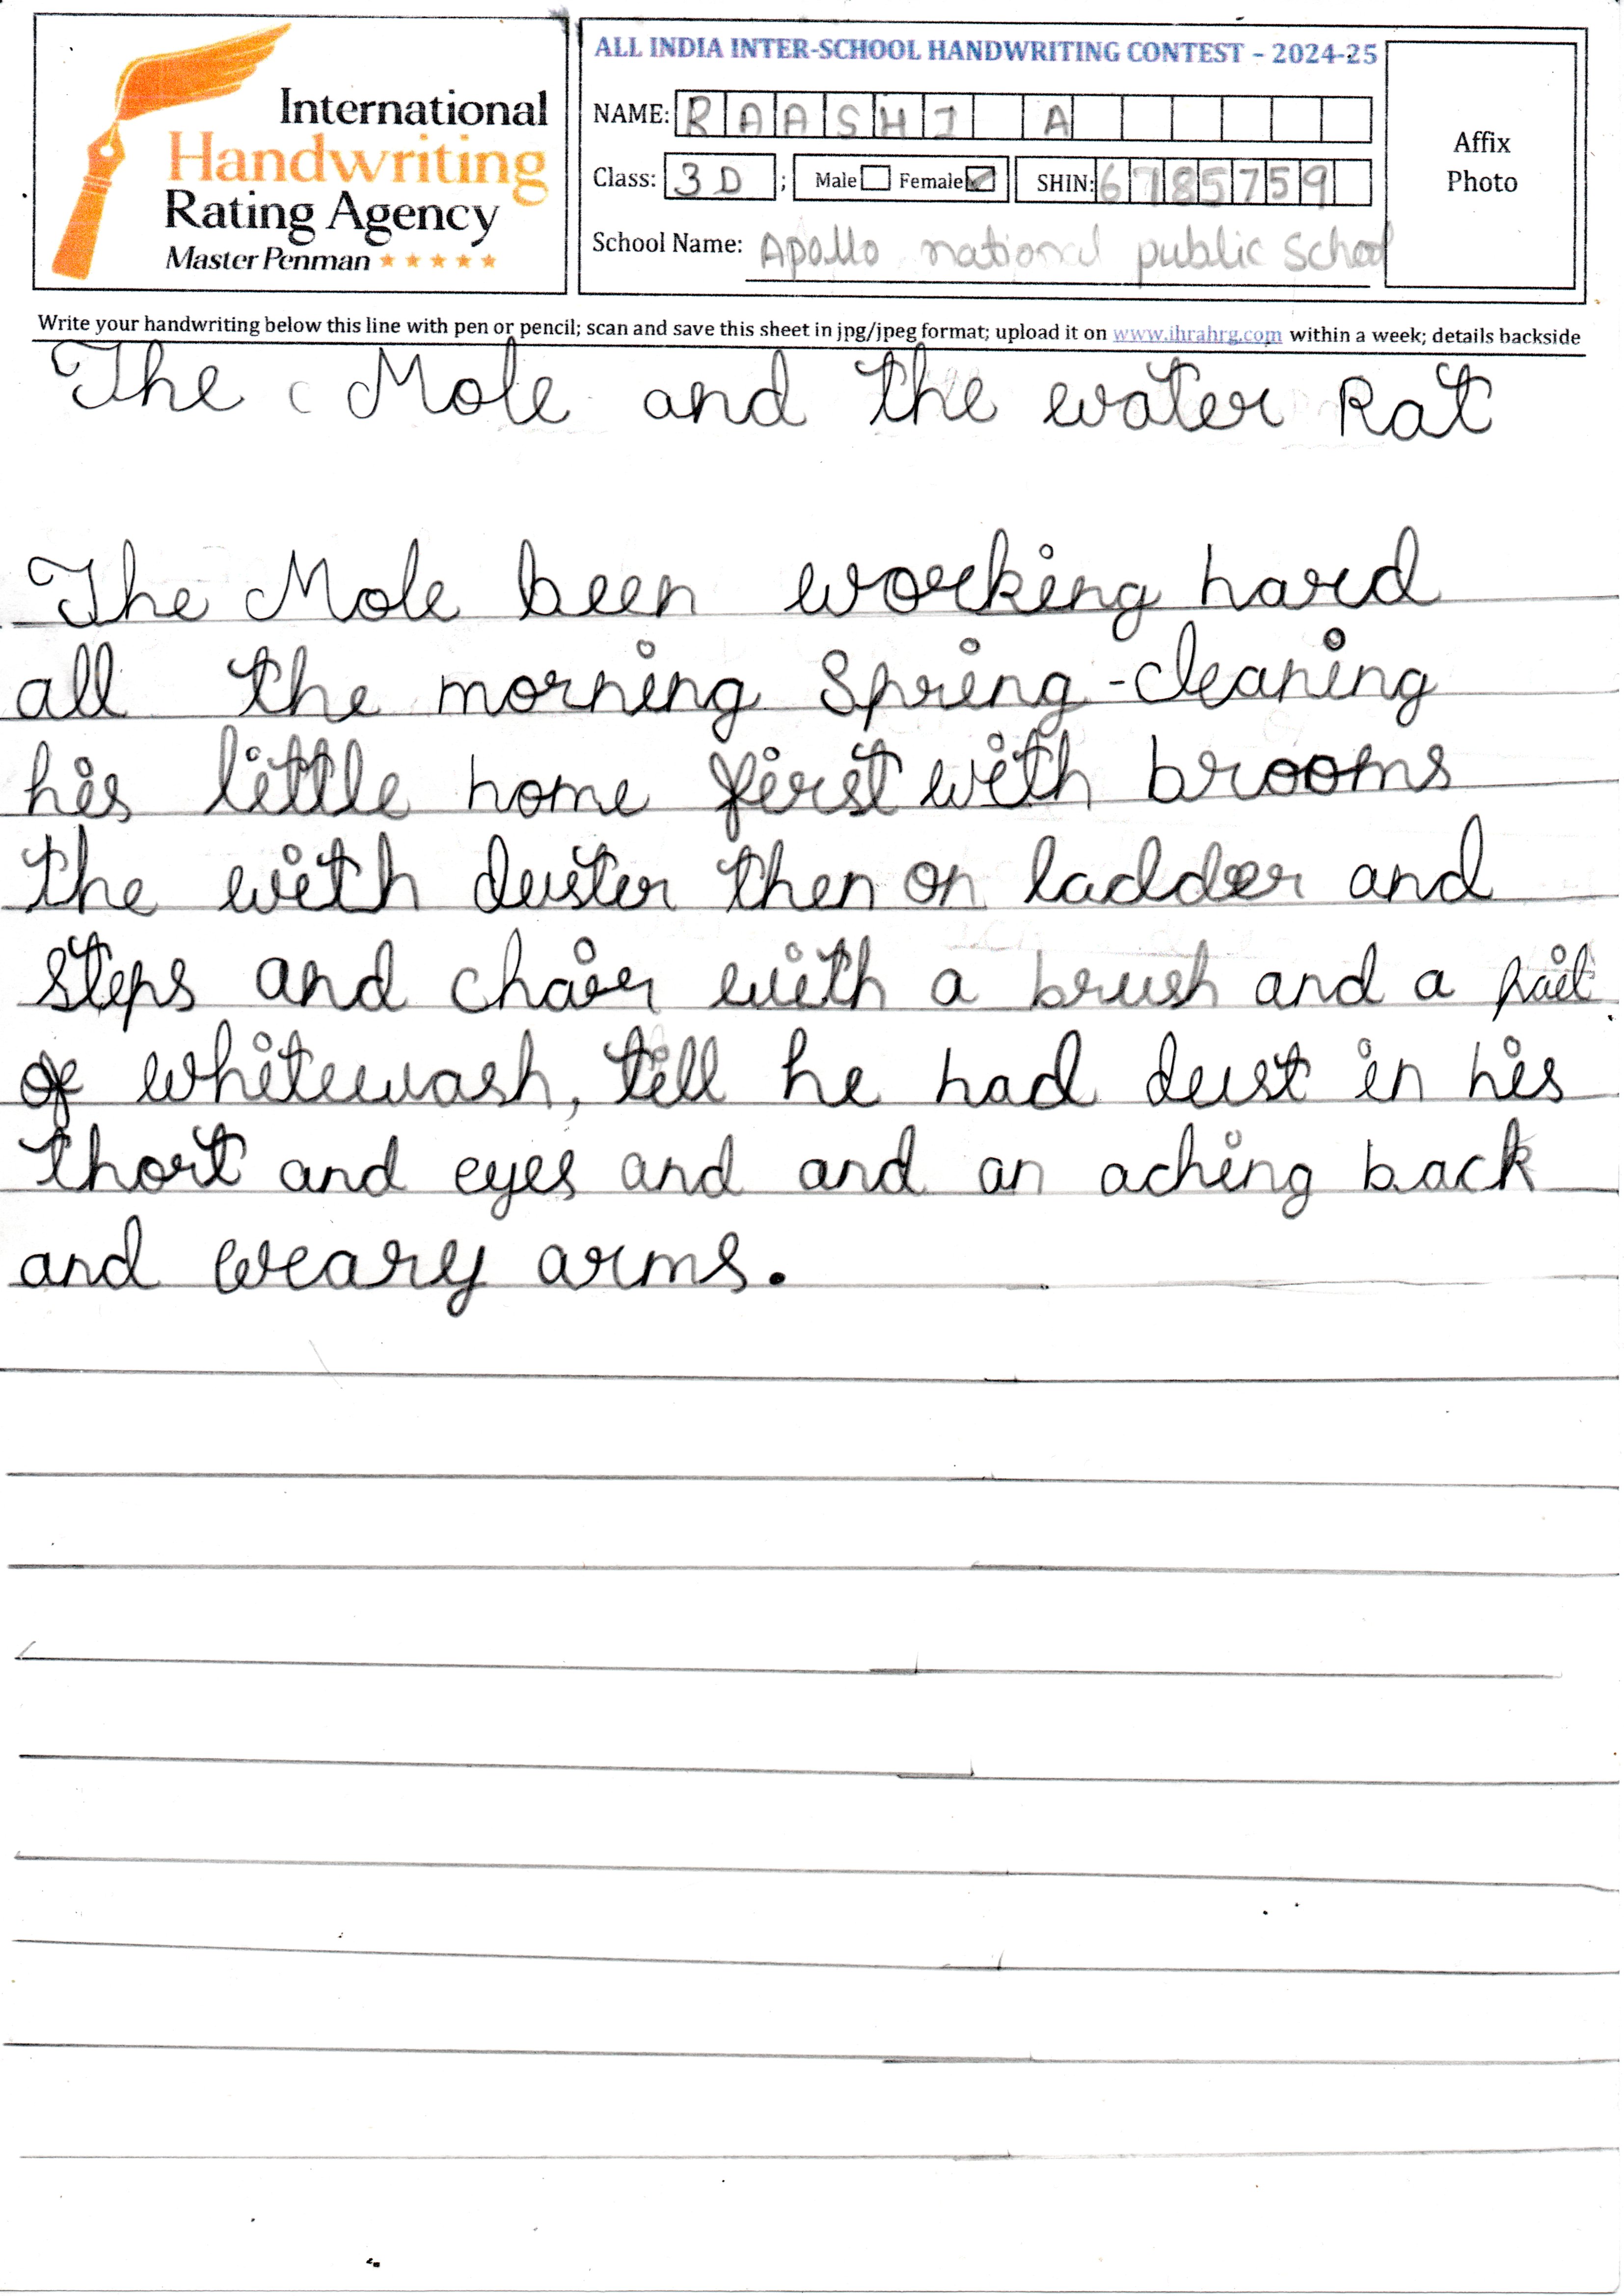 International
Handwriting
Rating Agency
Master Penman
ALL INDIA INTER-SCHOOL HANDWRITING CONTEST - 2024-25
NAME: RAASHI A
Class: 3 D ; Male Female SHIN: 6785759
School Name: Apollo national public School
Affix
Photo
Write your handwriting below this line with pen or pencil; scan and save this sheet in jpg/jpeg format; upload it on www.ihrahrg.com within a week; details backside
The Mole and the water Rat
The Mole been working hard
all the morning Spring-cleaning
his little home first with brooms
the with duster then on ladder and
steps and chair with a brush and a pail
of whitewash, till he had dust in his
thort and eyes and and an aching back
and weary arms.